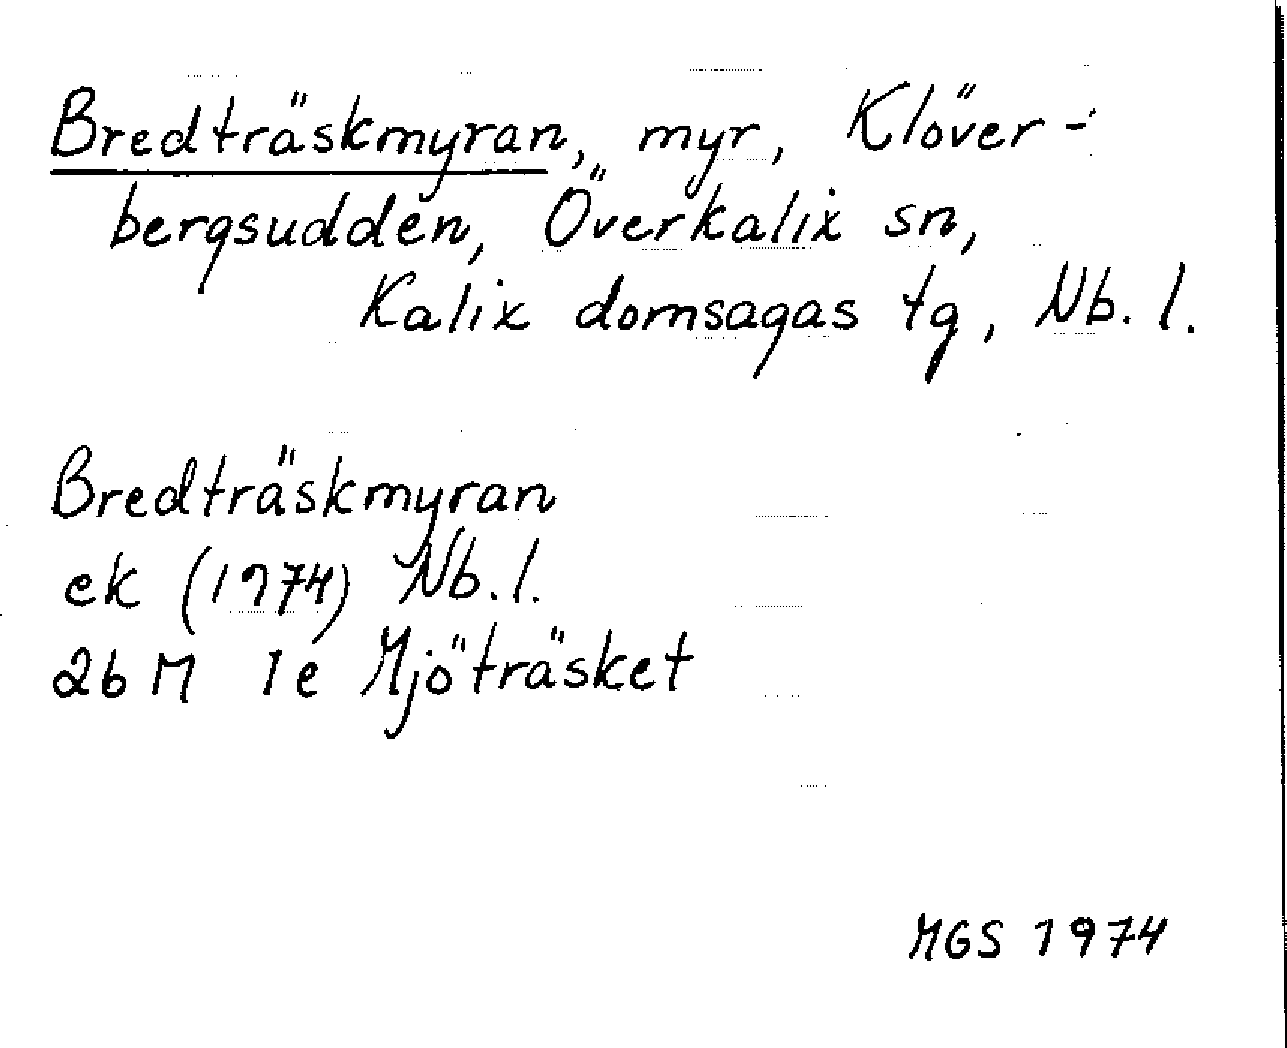 Bredträskmyran, myr, Klöver-
bergsudden, Överkalix sn,
Kalix domsagas tg, Nb. l.
Bredträskmyran
ek (1974) Nb. l.
26 M Ie Mjöträsket
MGS 1974